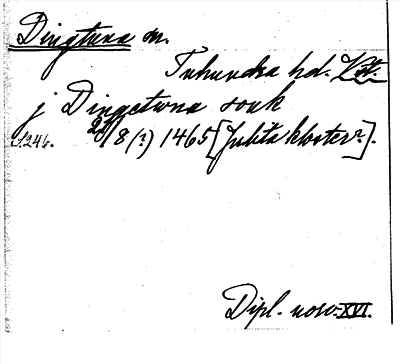 Dingtuna sn.
Tuhundra hd. Vstm.
j Dingetwna sokk
s. 246. 21/8 (?) 1465 [Julita kloster?].
Dipl. norv. XVI.